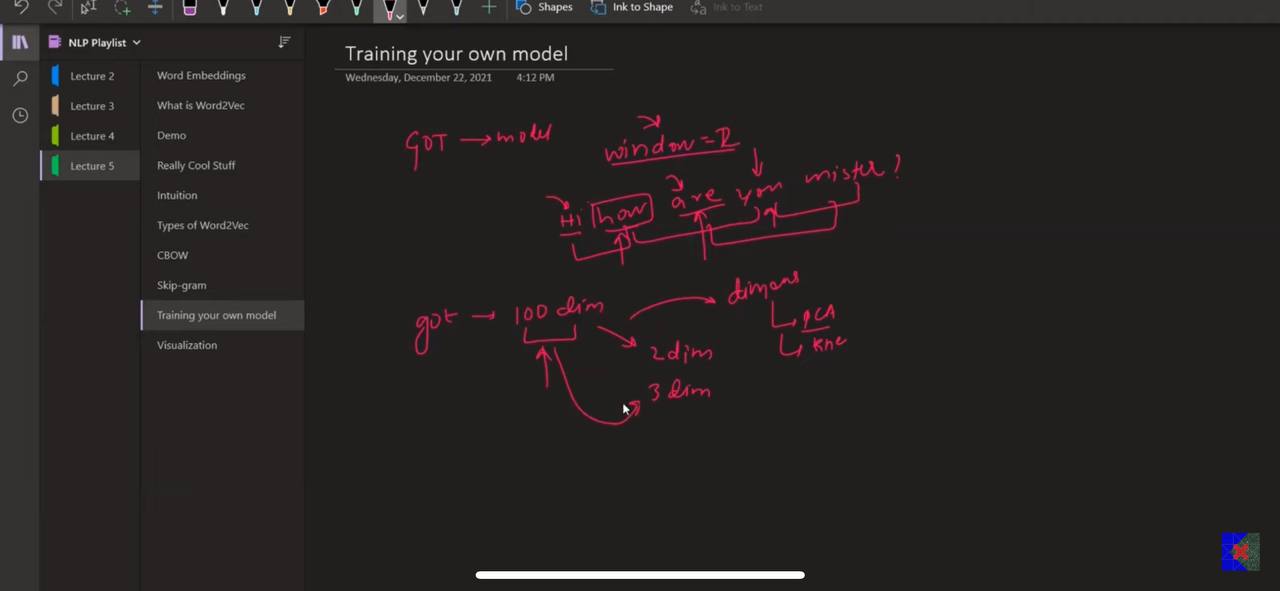 Shapes Ink to Shape Ink to Text
NLP Playlist
Lecture 2
Lecture 3
Lecture 4
Lecture 5
Word Embeddings
What is Word2Vec
Demo
Really Cool Stuff
Intuition
Types of Word2Vec
CBOW
Skip-gram
Training your own model
Visualization
Training your own model
Wednesday, December 22, 2021 4:12 PM
GOT → model
window = 2
Hi how are you mister?
got → 100 dim
dimens
PCA
2 dim
3 dim